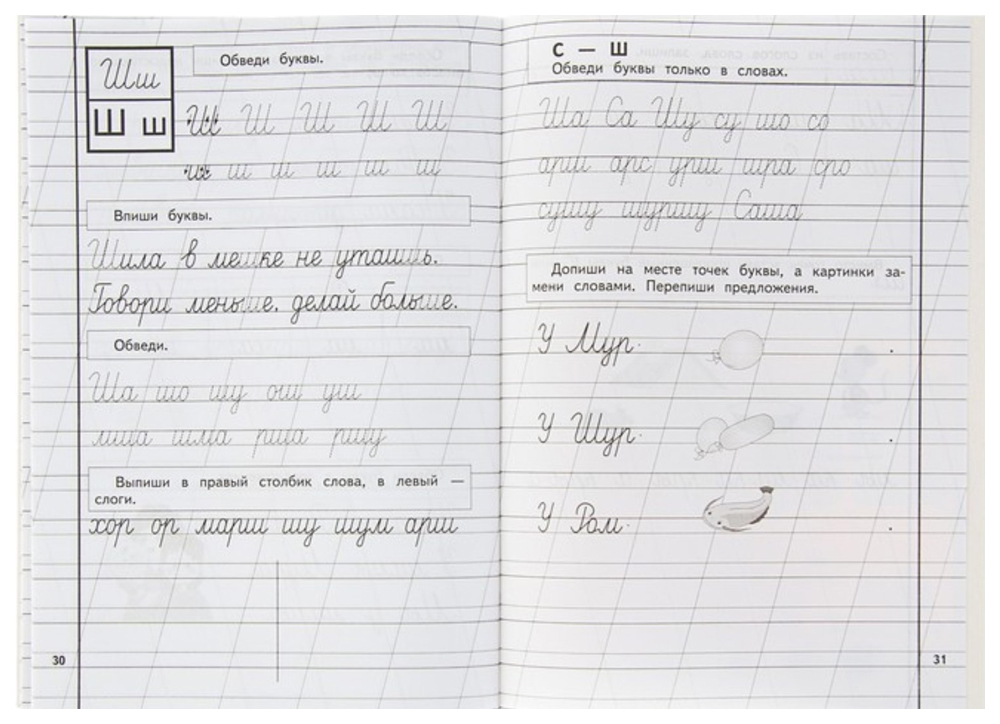 Шш
Ш ш
Обведи буквы.
Ш Ш Ш Ш Ш
ш ш ш ш ш ш
Впиши буквы.
Шила в мешке не утаишь.
Говори меньше, делай больше.
Обведи.
Ша шо шу ош уш
миша шма рша ршу
Выпиши в правый столбик слова, в левый —
слоги.
хор ор марш шу шум арш
30
С — Ш
Обведи буквы только в словах.
Ша Са Шу су шо со
арш арс урш шра сро
сушу шуршу Саша
Допиши на месте точек буквы, а картинки за-
мени словами. Перепиши предложения.
У Мур· .
У Шур· .
У Ром· .
31